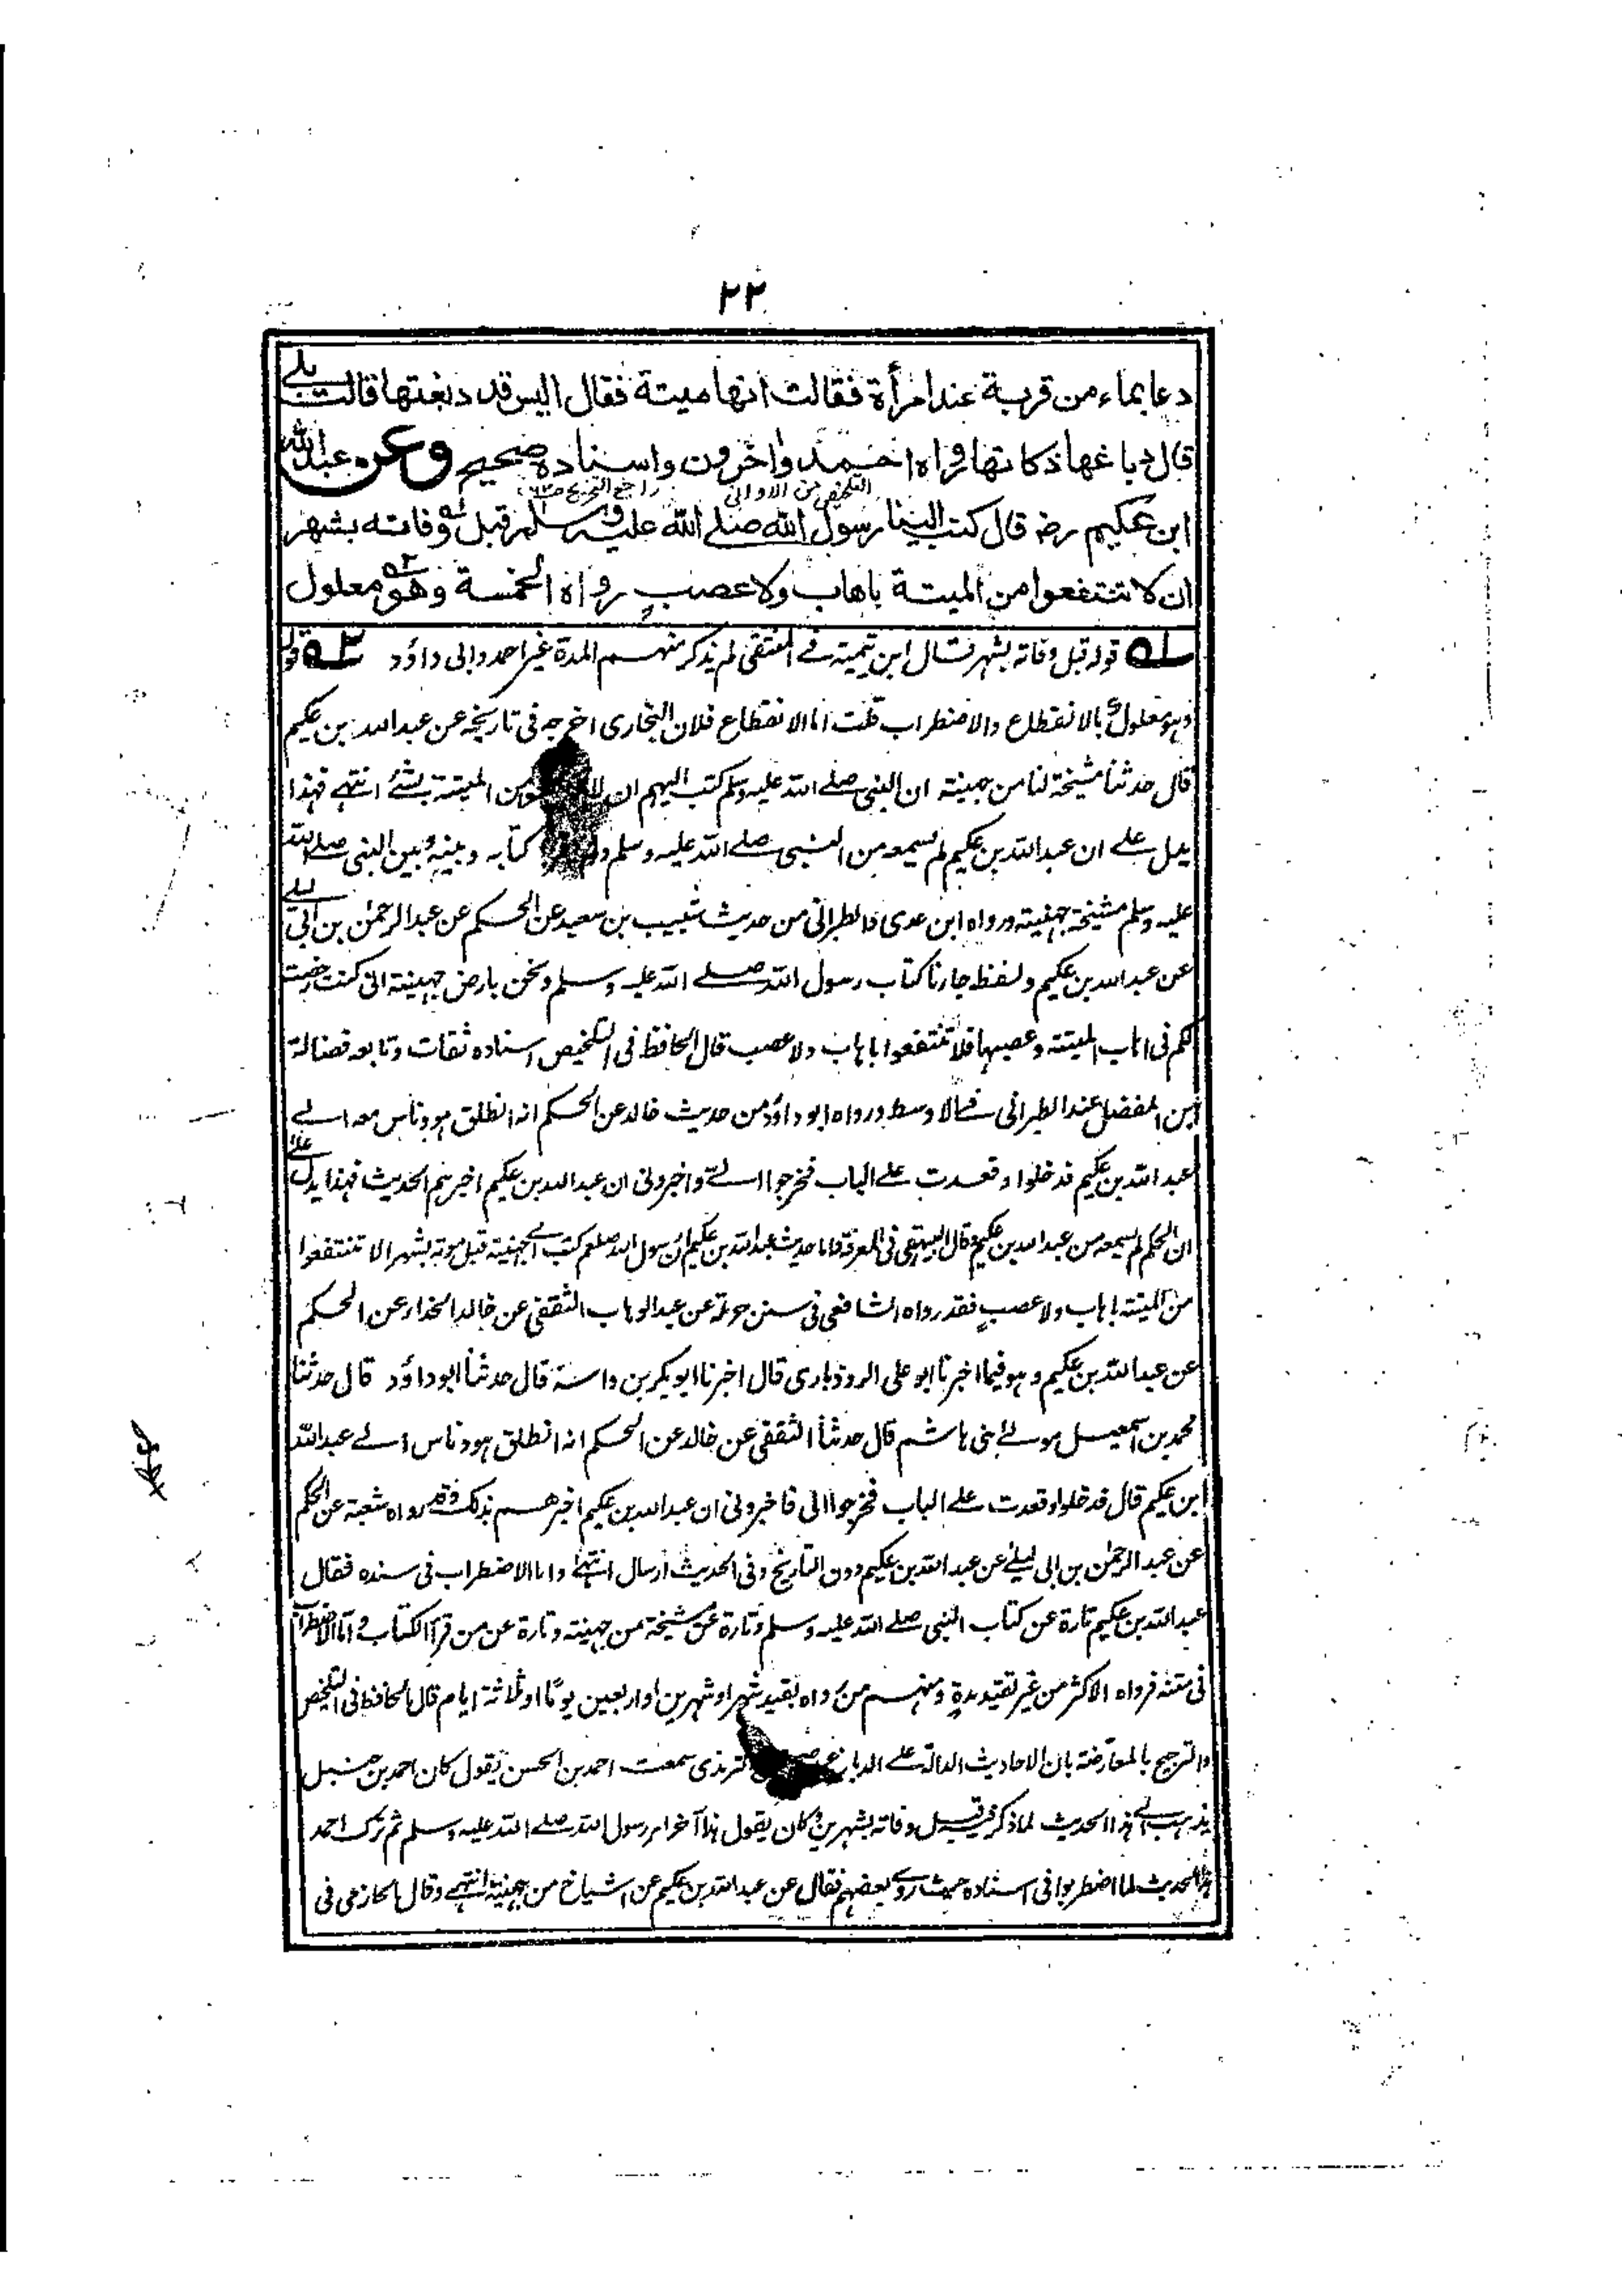 ٢٢
دعا بماء من قربة عند امرأة فقالت انها ميتة فقال اليس قد دبغتها قالت بلى
قال دباغها ذكاتها رواه احمد واخرون واسناده صحيح وعن عبد الله
راجع التخريج
ابن عكيم رضـ قال كتب الينا رسول الله صلے الله عليه وسلم قبل وفاته بشهر
ان لا تنتفعوا من الميتة باهاب ولا عصب رواه الخمسة وهو معلول
له قوله قبل وفاته بشهر قال ابن تيمية فے المنتقى لم يذكر منهم المدة غير احمد وابى داؤد ٢ه قوله
وهو معلول بالانقطاع والاضطراب قلت اما الانقطاع فلان البخارى اخرجه فى تاريخه عن عبد الله بن عكيم
قال حدثنا مشيخة لنا من جهينة ان النبى صلے الله عليه وسلم كتب اليهم ان لا من الميتة بشئ انتهے فهذا
يدل علے ان عبد الله بن عكيم لم يسمعه من النبى صلے الله عليه وسلم ولا كتابه وبينه وبين النبى صلے الله
عليه وسلم مشيخة جهينة ورواه ابن عدى والطبرانى من حديث شبيب بن سعيد عن الحكم عن عبد الرحمٰن بن ابى ليلے
عن عبد الله بن عكيم ولفظه جاءنا كتاب رسول الله صلے الله عليه وسلم ونحن بارض جهينة انى كنت رخصت
لكم فى اهاب الميتة وعصبها فلا تنتفعوا باهاب ولا عصب قال الحافظ فى التلخيص اسناده ثقات وتابعه فضالة
ابن المفضل عند الطبرانى فے الاوسط ورواه ابو داؤد من حديث خالد عن الحكم انه انطلق هو وناس معه الے
عبد الله بن عكيم فدخلوا وقعدت علے الباب فخرجوا الے واخبرونى ان عبد الله بن عكيم اخبرهم الحديث فهذا يدل علے
ان الحكم لم يسمعه من عبد الله بن عكيم وقال البيهقى فى المعرفة واما حديث عبد الله بن عكيم ان رسول الله صلعم كتب الے جهينة قبل موته بشهر الا تنتفعوا
من الميتة باهاب ولا عصب فقد رواه الشافعى فى سنن حرملة عن عبد الوهاب الثقفى عن خالد الحذاء عن الحكم
عن عبد الله بن عكيم وهو فيما اخبرنا ابو على الروذبارى قال اخبرنا ابو بكر بن داسة قال حدثنا ابو داؤد قال حدثنا
محمد بن اسمعيل مولے بنى هاشم قال حدثنا الثقفى عن خالد عن الحكم انه انطلق هو وناس الے عبد الله
ابن عكيم قال فدخلوا وقعدت علے الباب فخرجوا الى فاخبرونى ان عبد الله بن عكيم اخبرهم بذلك وقد رواه شعبة عن الحكم
عن عبد الرحمٰن بن ابى ليلے عن عبد الله بن عكيم دون التاريخ وفى الحديث ارسال انتهے واما الاضطراب فى سنده فقال
عبد الله بن عكيم تارة عن كتاب النبى صلے الله عليه وسلم وتارة عن مشيخة من جهينة وتارة عن من قرأ الكتاب واما الاضطراب
فى متنه فرواه الاكثر من غير تقييد مدة ومنهم من رواه بقيد شهر او شهرين او اربعين يوما او ثلاثة ايام قال الحافظ فى التلخيص
والترجيح بالمعارضة بان الاحاديث الدالة علے الدباغ الترمذى سمعت احمد بن الحسن يقول كان احمد بن حنبل
يذهب الے هذا الحديث لما ذكر فيه قبل وفاته بشهرين وكان يقول هذا آخر امر رسول الله صلے الله عليه وسلم ثم ترك احمد
هذا الحديث لما اضطربوا فى اسناده حيث روے بعضهم فقال عن عبد الله بن عكيم عن اشياخ من جهينة انتهے وقال الحازمى فى